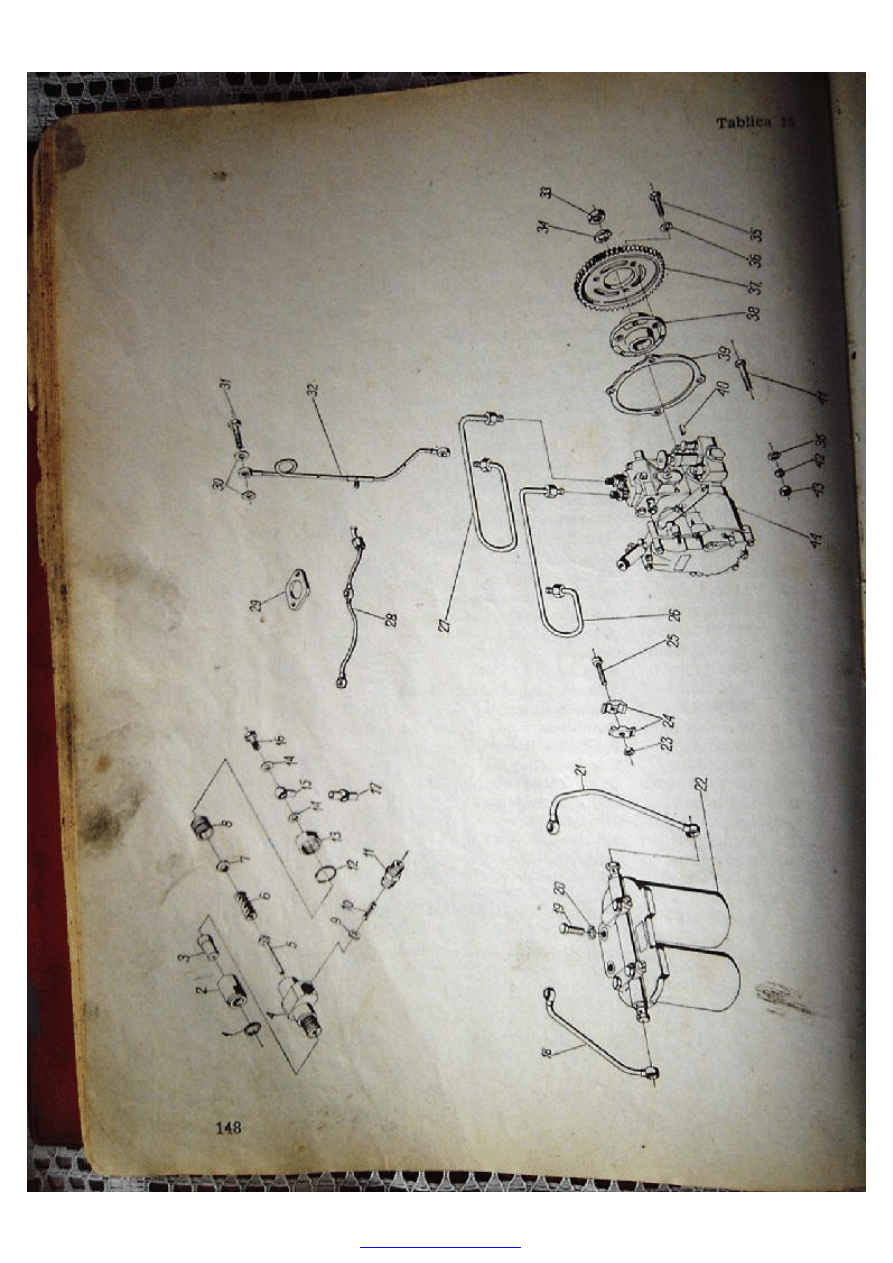 Tablica
1
2
3
4
5
6
7
8
9
10
11
12
13
14
15
14
16
17
18
19
20
21
22
23
24
25
26
27
28
29
30
31
32
33
34
35
36
37
38
39
40
41
36
42
43
44
148